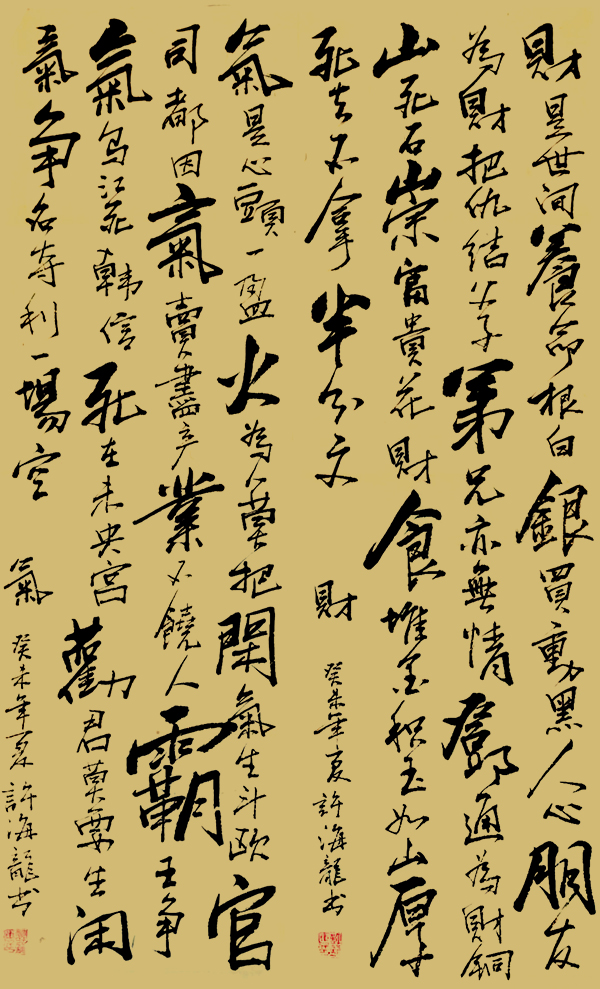 財是世间養命根白銀買動黑人心朋友
為財把仇结父子弟兄亦無情鄧通為財銅
山死石崇富貴花財食堆金积玉如山厚
死去不拿半分文
財
癸未年夏 許海龍书
氣是心頭一盈火為人莫把閑氣生斗欧官
司都因氣賣盡产業不饒人霸王争
氣乌江死韩信死在未央宫勸君莫要生闲
氣争名夺利一場空
氣
癸未年夏 許海龍书